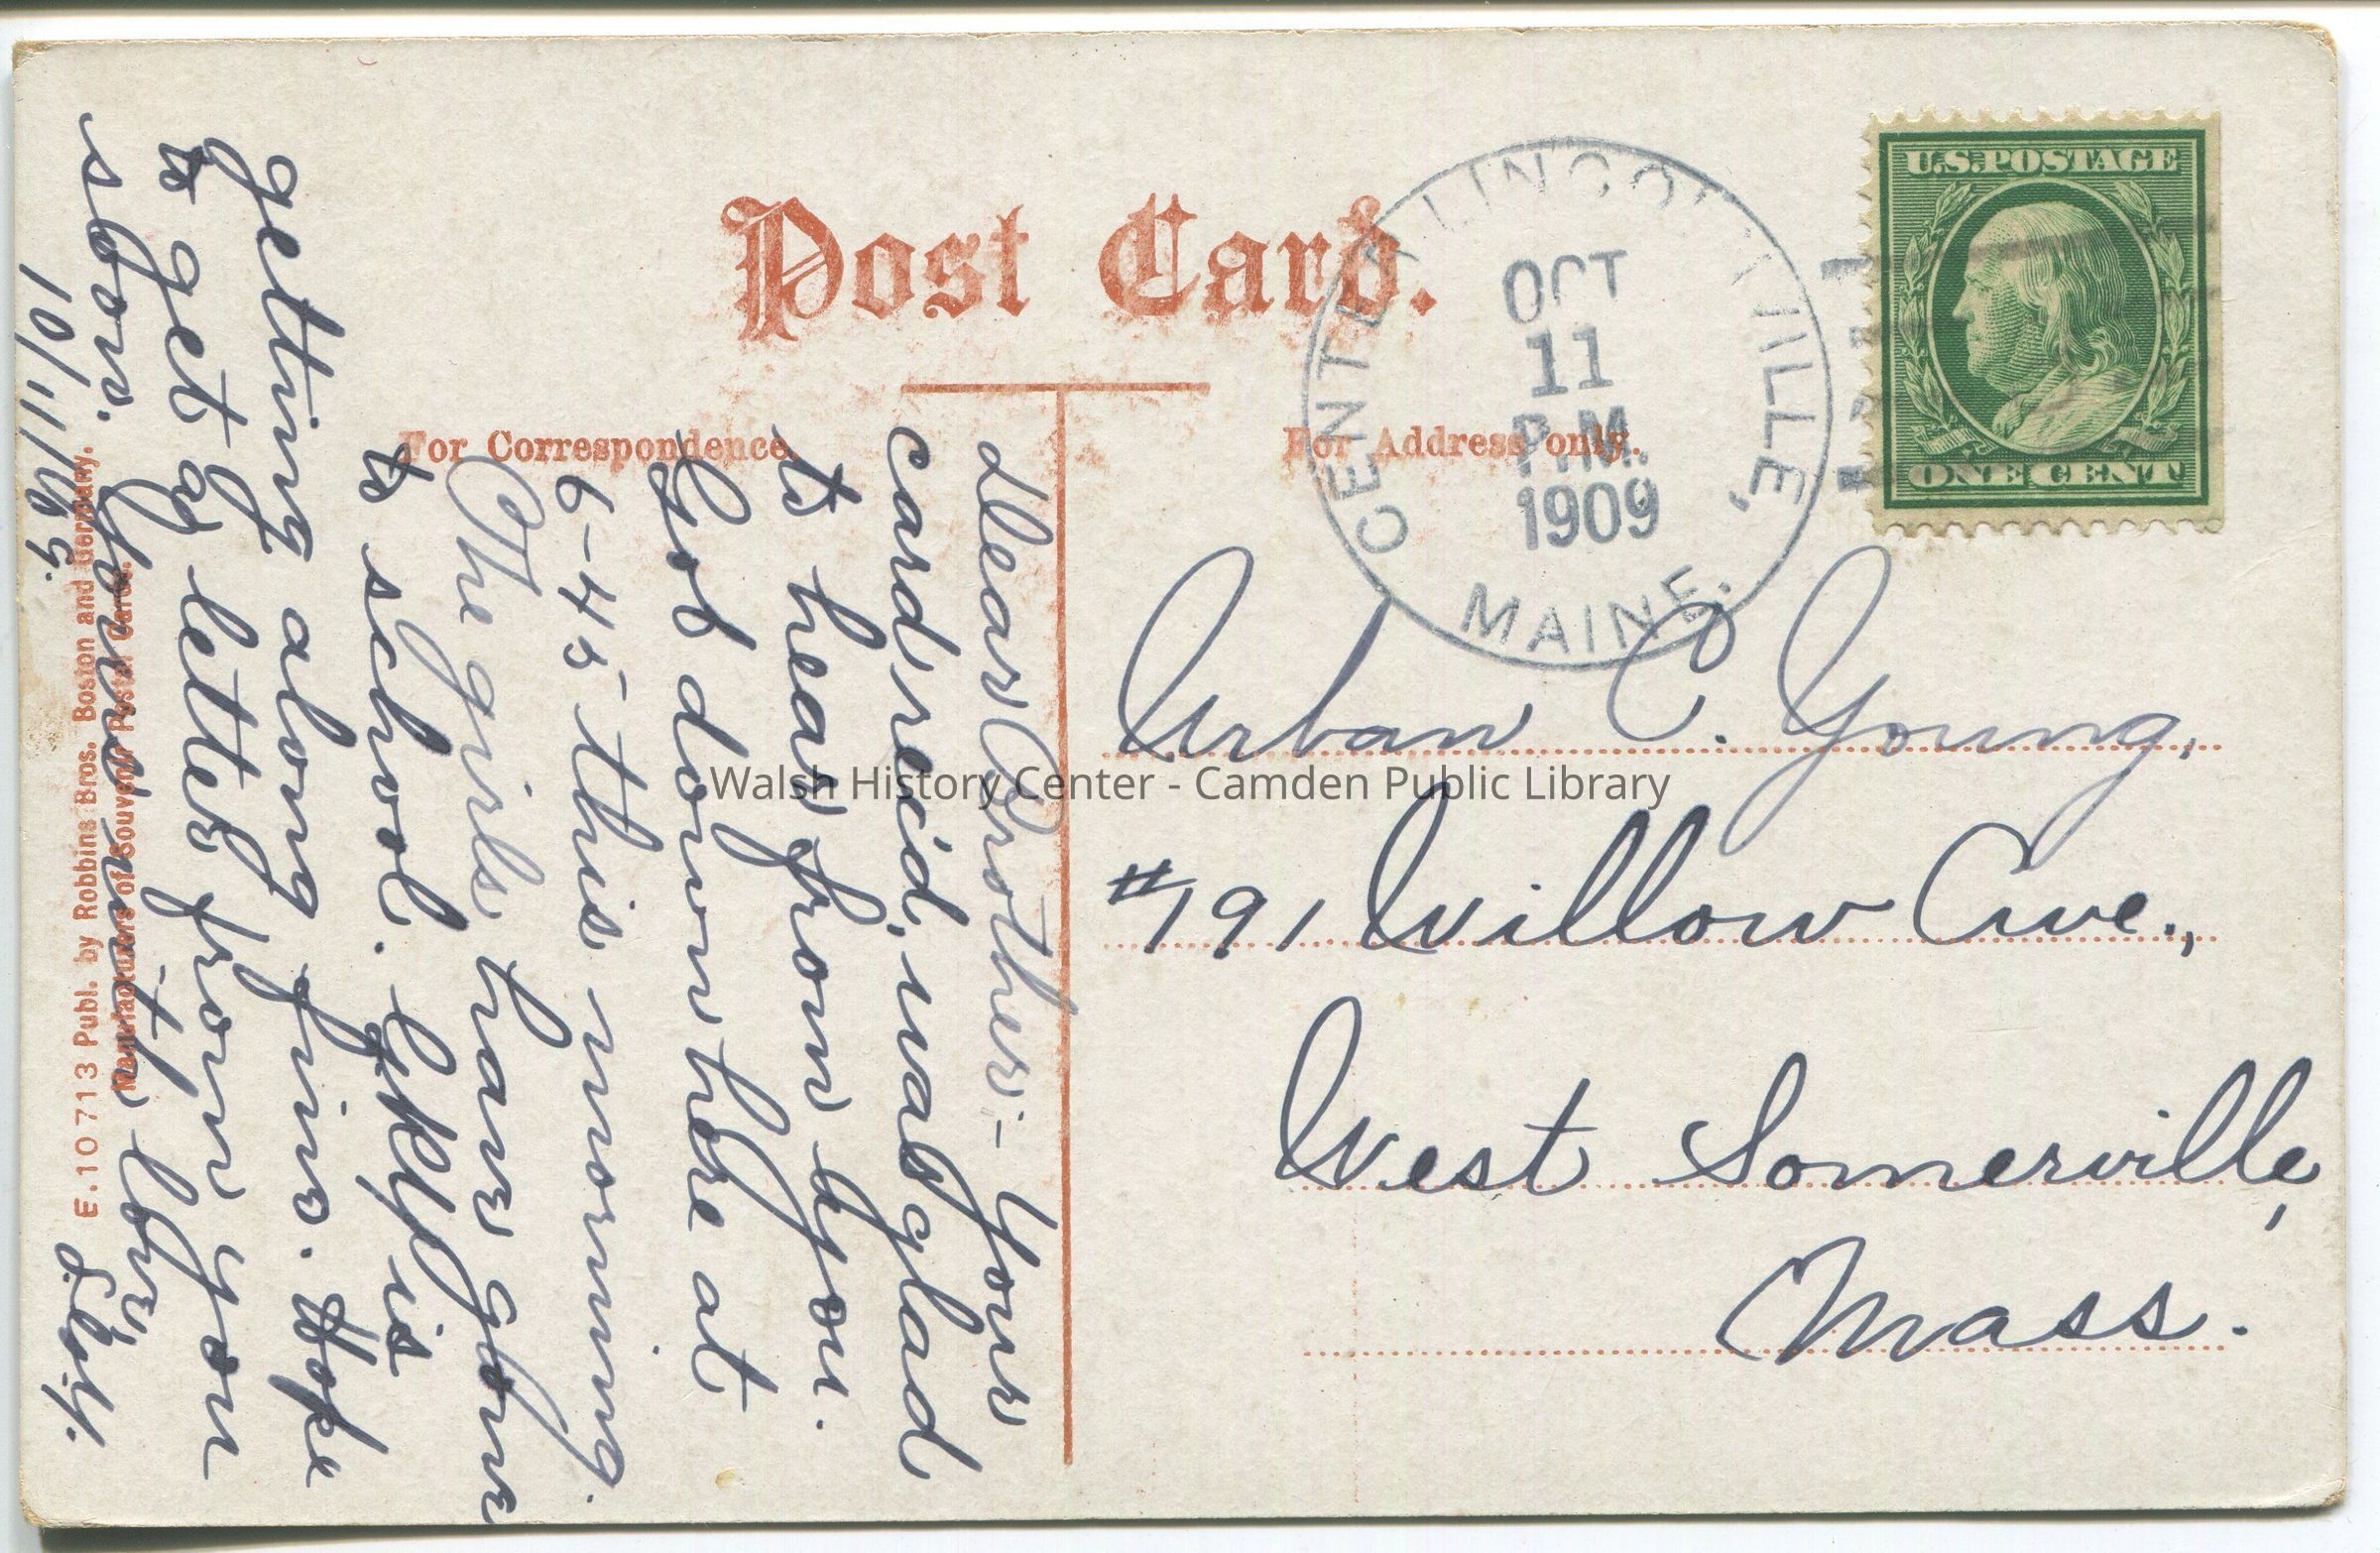 Post Card.
For Correspondence.
For Address only.
CENTER LINCOLNVILLE,
OCT
11
P.M.
1909
MAINE.
U.S. POSTAGE
ONE CENT
Urban C. Young,
#191 Willow Ave.,
West Somerville,
Mass.
Dear Brother:- Your
card rec'd, was glad
to hear from you.
Got down here at
6-45 this morning.
The girls have gone
to school. is
getting along fine. Hope
to get a letter from you
soon. Yours with love
10/11/09.
E. 10 713 Publ. by Robbins Bros. Boston and Germany.
Manufacturers of Souvenir Postal Cards.
Walsh History Center - Camden Public Library